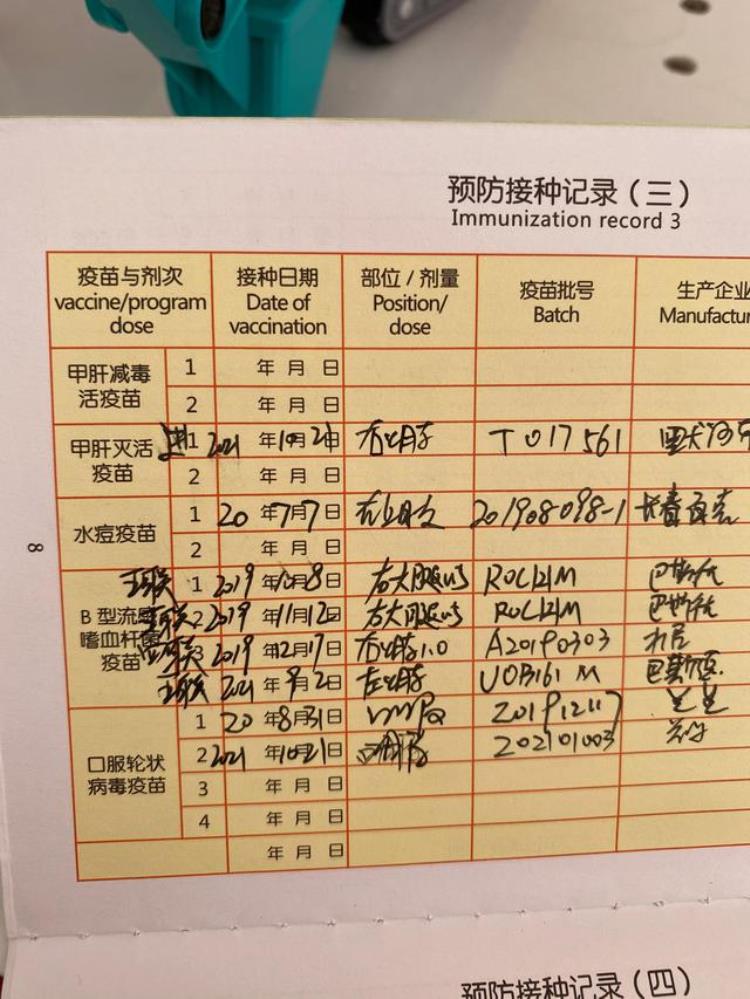 预防接种记录（三）
Immunization record 3
疫苗与剂次 接种日期 部位/剂量 疫苗批号 生产企业
vaccine/program dose Date of vaccination Position/dose Batch Manufactur
甲肝减毒活疫苗 1 年 月 日
2 年 月 日
甲肝灭活疫苗 进 1 2021 年 10 月 21 日 右上臂 T017561
2 年 月 日
水痘疫苗 1 20 年 7 月 7 日 201908098-1 长春百克
2 年 月 日
B型流感嗜血杆菌疫苗 1 2019 年 10 月 8 日 右大腿 R0C121M 巴斯德
2 2019 年 11 月 12 日 右大腿 R0C121M 巴斯德
3 2019 年 12 月 17 日 A20190303
2021 年 9 月 2 日 左上臂 U0B161M 巴斯德
口服轮状病毒疫苗 1 20 年 8 月 31 日 20191217 兰生
2 2021 年 10 月 21 日 202101003
3 年 月 日
4 年 月 日
年 月 日
8
预防接种记录（四）